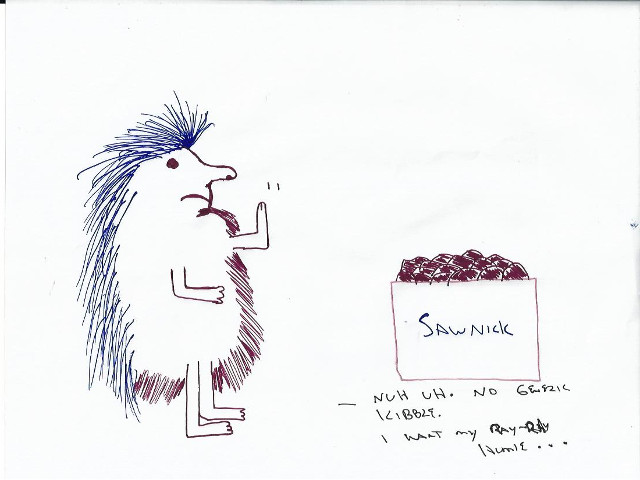 SAWNICK
— NUH UH. NO GENERIC
KIBBLE.
I WANT MY RAY-RAY
...